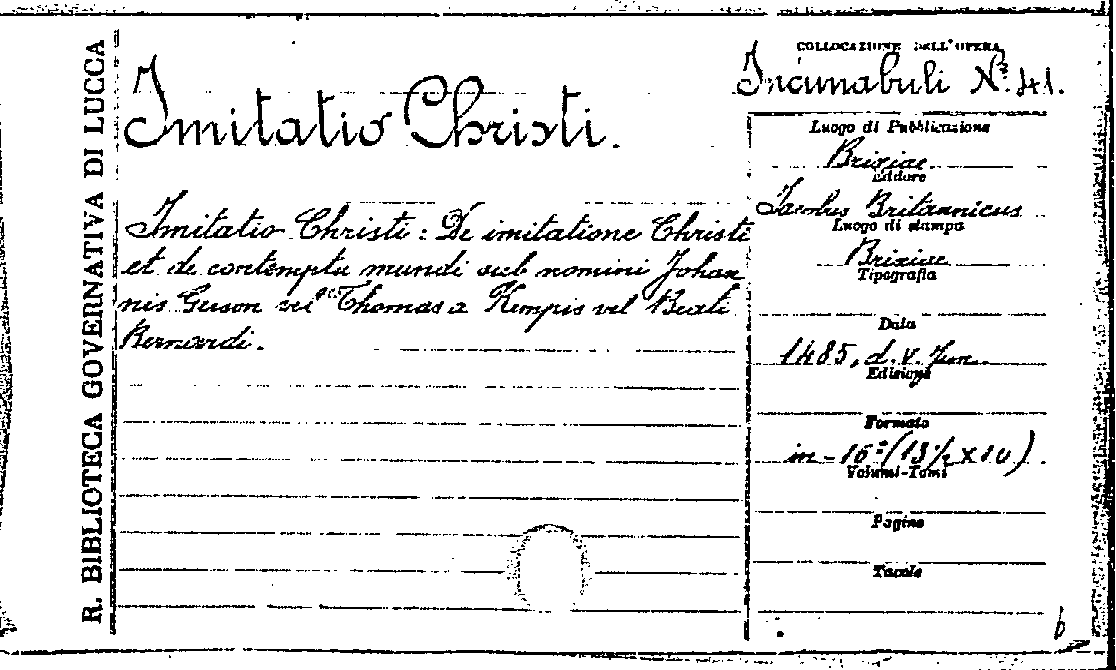 R. BIBLIOTECA GOVERNATIVA DI LUCCA
Imitatio Christi.
Imitatio Christi: De imitatione Christi
et de contemptu mundi sub nomini Johan
nis Gerson vel Thomas a Kempis vel Beati
Bernardi.
COLLOCAZIONE DELL'OPERA
Incunabuli N.° 41.
Luogo di Pubblicazione
Brixiae
Editore
Jacobus Britannicus
Luogo di stampa
Brixiae
Tipografia
Data
1485, d. v. Jun.
Edizione
Formato
in-16° (13½ x 10).
Volumi-Tomi
Pagine
Tavole
b